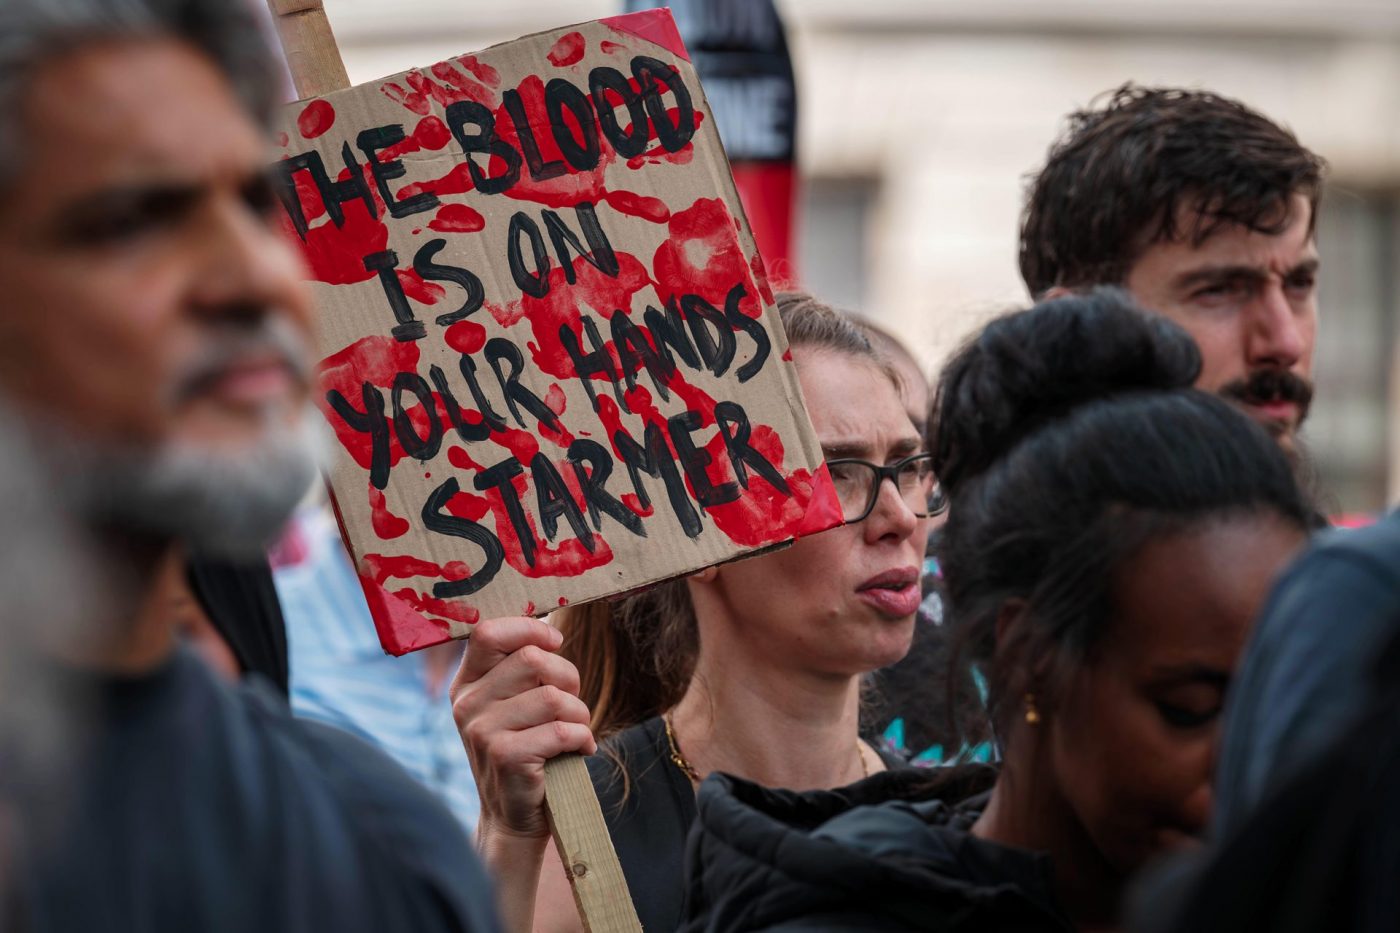 THE BLOOD
IS ON
YOUR HANDS
STARMER